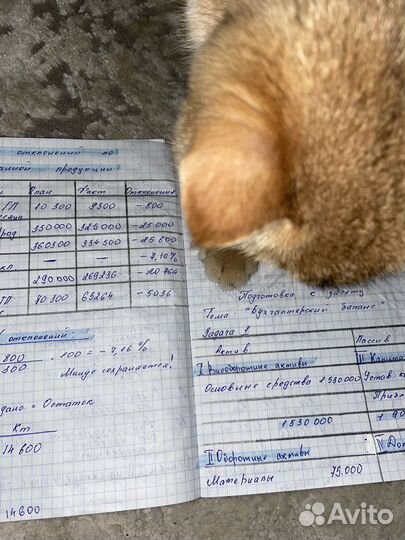 отклонений по
продукции
План Факт Отклонения
ГП 10 300 9500 -800
350 000 325 000 -25 000
360300 334 500 -25 800
— — -7,16%
290 000 269236 -20 764
ГП 70 300 65264 -5036
отклонений:
800 · 100 = -7,16 %
Минус сохраняется!
= Остаток
Кт
14 600
14600
Подготовка к зачету
Тема: "Бухгалтерский баланс"
Задача 1
Актив Пассив
I Внеоборотные активы
Основные средства 1530000
1530000
II Оборотные активы
Материалы 75.000
Avito